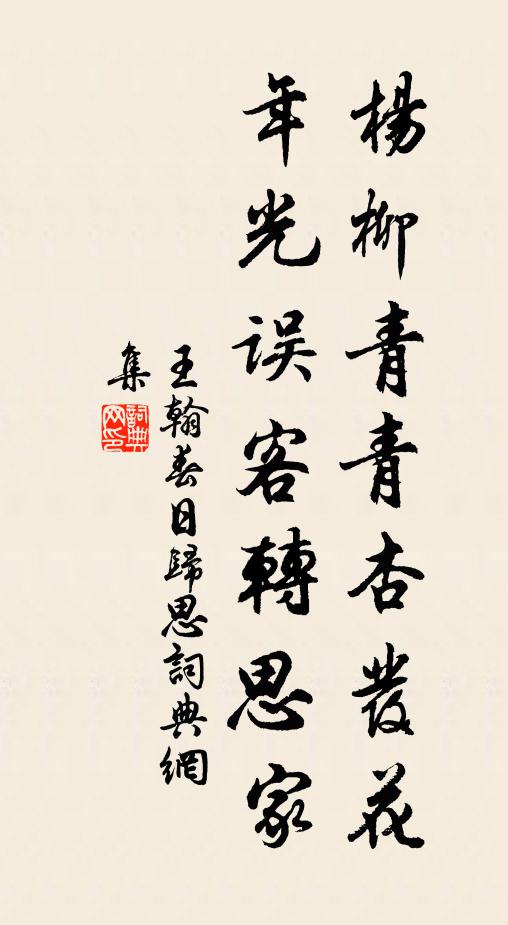 楊柳青青杏發花
年光誤客轉思家
王翰春日歸思詞典網
集
詞典
网印